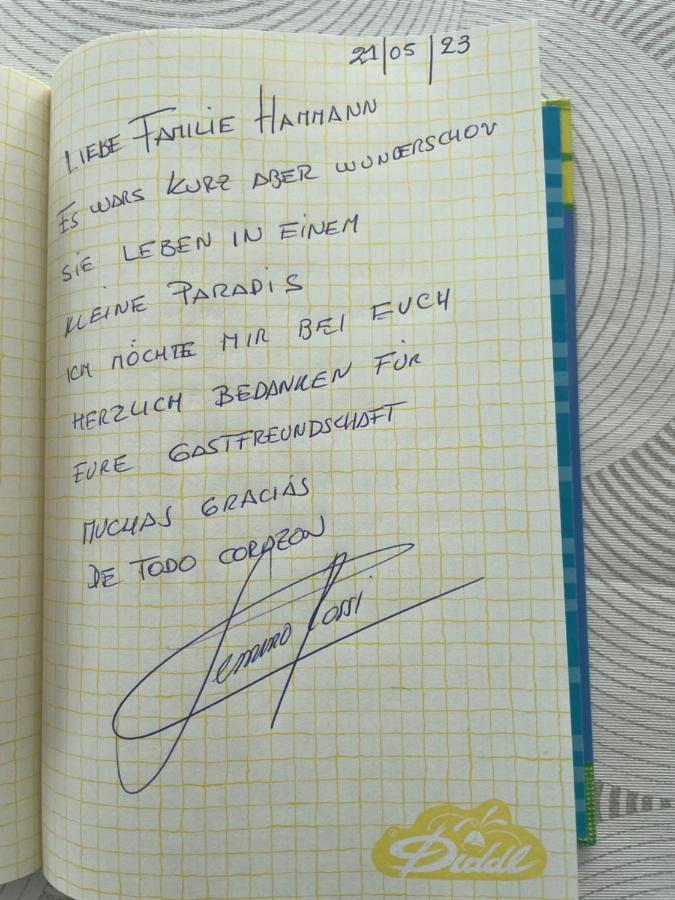 21/05/23
LIEBE FAMILIE HAMMANN
ES WARS KURZ ABER WUNDERSCHON
SIE LEBEN IN EINEM
KLEINE PARADIS
ICH MÖCHTE MIR BEI EUCH
HERZLICH BEDANKEN FÜR
EURE GASTFREUNDSCHAFT
MUCHAS GRACIÁS
DE TODO CORAZON
Rossi
Diddl